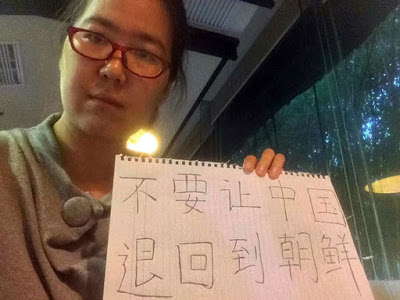 不要让中国
退回到朝鲜